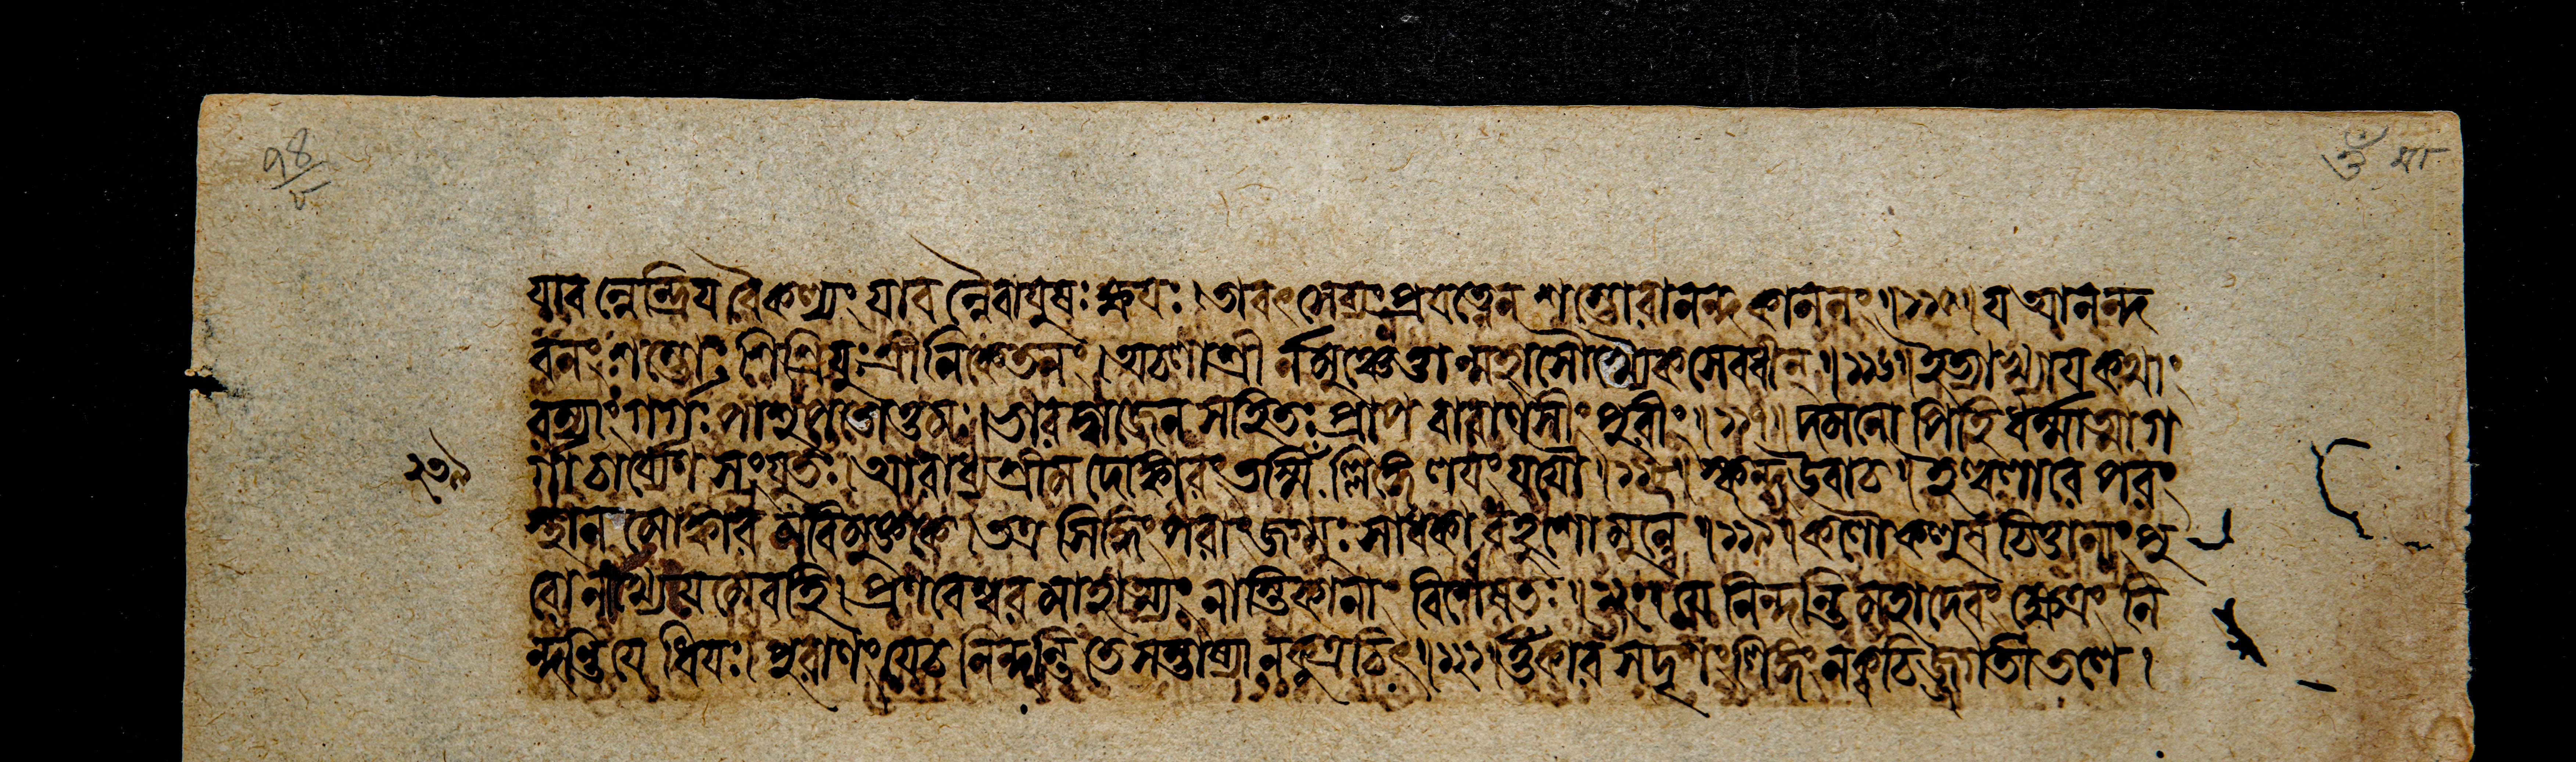 ৭৪/৮
যাবন্নেন্দ্রিযবৈকল্যং যাবন্নৈবাযুষঃ ক্ষযঃ। তাবৎসেব্যং প্রযত্নেন শম্ভোরানন্দকাননং॥১১৫॥ য আনন্দ
বনং শম্ভোঃ শিশ্রিযুঃ শ্রীনিকেতনং। অচলাশ্রীর্নমুঞ্চেত্তান্মহাসৌখ্যৈকসেবধীন্॥১১৬॥ ইত্যাখ্যায কথাং
রম্যাং গর্গঃ পাশুপতোত্তমঃ। ভারদ্বাজেন সহিতঃ প্রাপ বারাণসীং পুরীং॥১১৭॥ দমনোপি হি ধর্ম্মাত্মা গ
২৩৯
র্গাচার্যেণ সংযুতঃ। আরাধ্য শ্রীমদোঙ্কারং তস্মিঁল্লিঙ্গে লযং যযৌ॥১১৮॥ স্কন্দউবাচ॥ ইল্বলারে পরং
স্থানমোঙ্কারমবিমুক্তকে। তত্র সিদ্ধিং পরাং জগ্মুঃ সাধকাবহুশো মুনে॥১১৯॥ কলৌ কলুষচিত্তানাং পু
রো নাখ্যেযমেব হি। প্রণবেশ্বরমাহাত্ম্যং নাস্তিকানাং বিশেষতঃ॥১২০॥ যে নিন্দন্তি মহাদেবং ক্ষেত্রং নি
ন্দন্তি যে ধিযঃ। পুরাণং যে চ নিন্দন্তি তে সম্ভাষ্যা ন কুত্রচিৎ॥১২১॥ ওঁকারসদৃশং লিঙ্গং ন ক্বচিজ্জগতীতলে।